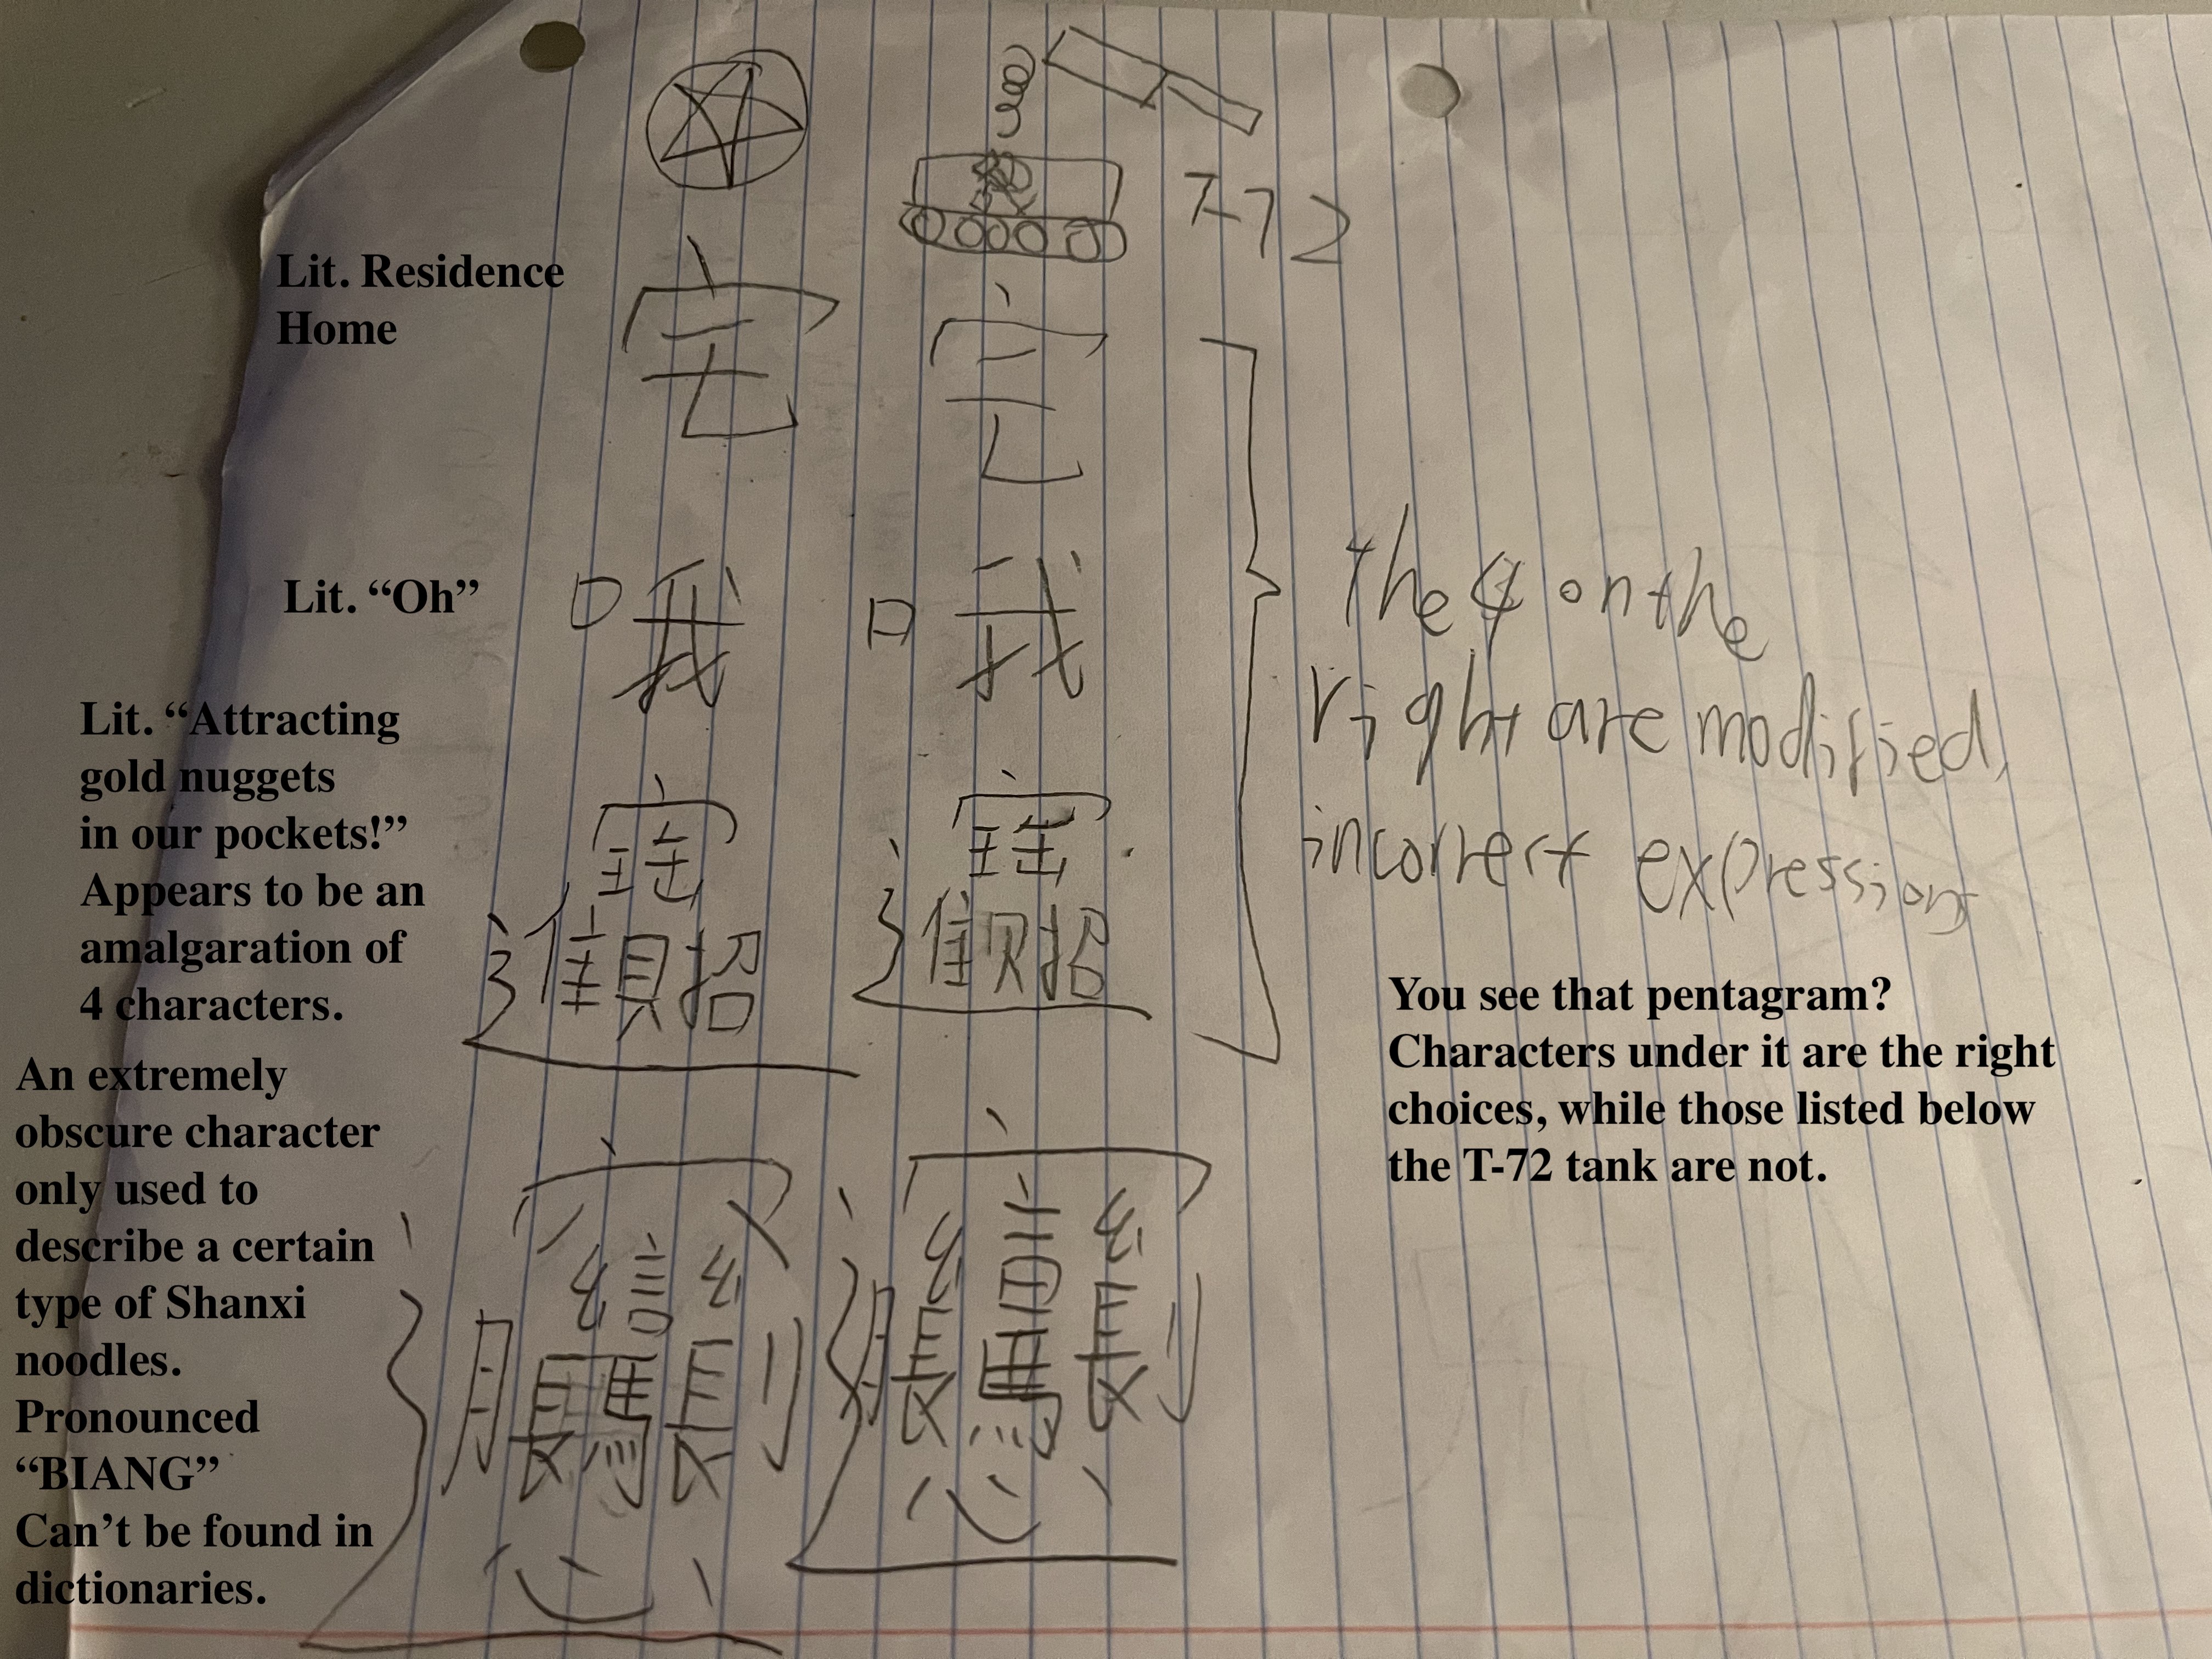 T-72
Lit. Residence
Home
宅
Lit. “Oh”
哦
哦
Lit. “Attracting
gold nuggets
in our pockets!”
Appears to be an
amalgaration of
4 characters.
An extremely
obscure character
only used to
describe a certain
type of Shanxi
noodles.
Pronounced
“BIANG”
Can’t be found in
dictionaries.
the 4 on the
right are modified,
incorrect expressions
You see that pentagram?
Characters under it are the right
choices, while those listed below
the T-72 tank are not.